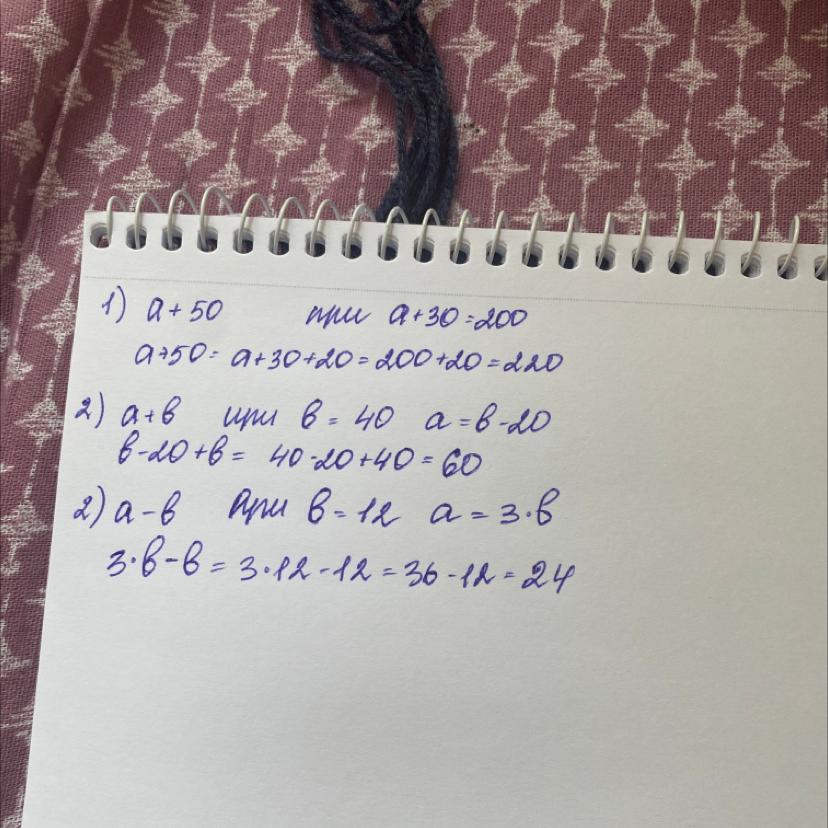 1) a + 50 при a+30=200
a+50= a+30+20=200+20=220
2) a+b при b = 40 a = b-20
b-20+b= 40-20+40=60
2) a-b при b=12 a = 3·b
3·b-b = 3·12-12=36-12=24